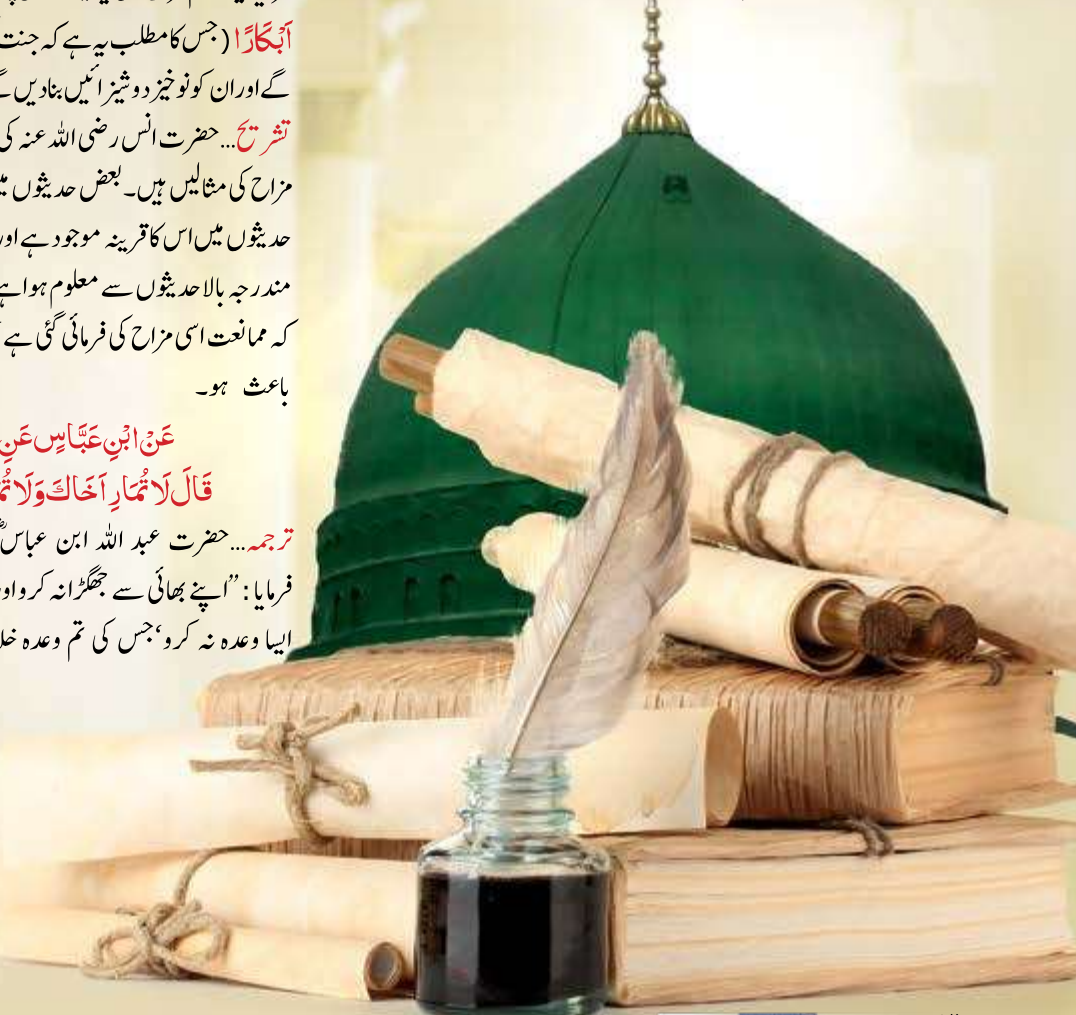 اَبْكَارًا (جس کا مطلب یہ ہے کہ جنت
گے اور ان کو نوخیز دوشیزائیں بنا دیں گے
تشریح... حضرت انس رضی اللہ عنہ کی
مزاح کی مثالیں ہیں۔ بعض حدیثوں
حدیثوں میں اس کا قرینہ موجود ہے اور
مندرجہ بالا حدیثوں سے معلوم ہوا ہے
کہ ممانعت اسی مزاح کی فرمائی گئی ہے
باعث ہو۔
عَنْ ابْنِ عَبَّاسٍ عَنِ
قَالَ لَا تُمَارِ اَخَاكَ وَلَا
ترجمہ... حضرت عبد اللہ ابن عباسؓ
فرمایا: ”اپنے بھائی سے جھگڑا نہ کرو اور
ایسا وعدہ نہ کرو، جس کی تم وعدہ